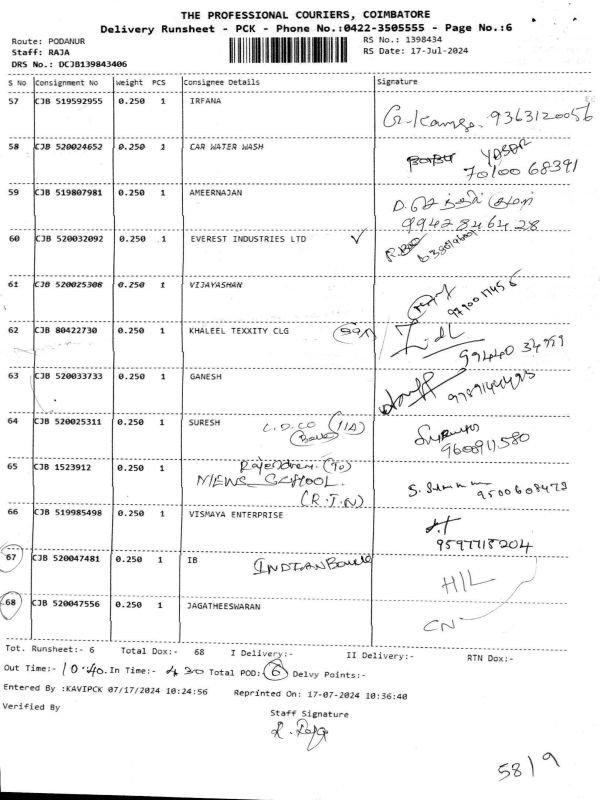 THE PROFESSIONAL COURIERS, COIMBATORE
Delivery Runsheet - PCK - Phone No.:0422-3505555 - Page No.:6
Route: PODANUR RS No.: 1398434
Staff: RAJA RS Date: 17-Jul-2024
DRS No.: DCJB139843406
S No Consignment No Weight PCS Consignee Details Signature
57 CJB 519592955 0.250 1 IRFANA
9363120056
58 CJB 520024652 0.250 1 CAR WATER WASH
70100 68391
59 CJB 519807981 0.250 1 AMEERNAJAN
9942846428
60 CJB 520032092 0.250 1 EVEREST INDUSTRIES LTD
61 CJB 520025308 0.250 1 VIJAYASHAN
62 CJB 80422730 0.250 1 KHALEEL TEXXITY CLG
63 CJB 520033733 0.250 1 GANESH
64 CJB 520025311 0.250 1 SURESH
65 CJB 1523912 0.250 1
NIEWS SCHOOL.
(R.T.N)
9500608473
66 CJB 519985498 0.250 1 VISMAYA ENTERPRISE
9597718204
67 CJB 520047481 0.250 1 IB INDIAN Bank
H/L
68 CJB 520047556 0.250 1 JAGATHEESWARAN
CN
Tot. Runsheet:- 6 Total Dox:- 68 I Delivery:- II Delivery:- RTN Dox:-
Out Time:- 10:40 In Time:- 4 30 Total POD:- 6 Delvy Points:-
Entered By :KAVIPCK 07/17/2024 10:24:56 Reprinted On: 17-07-2024 10:36:40
Verified By
Staff Signature
R. Raja
58/9